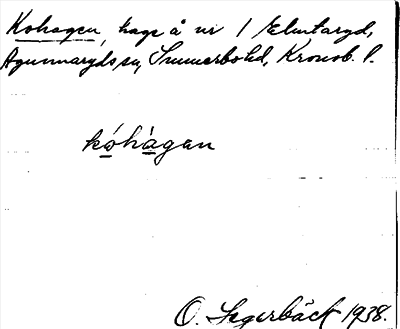 Kohagen, hage å nr 1 Elmtaryd,
Agunnaryds sn, Sunnerbo hd, Kronob. l.
kóhàgan
O. Segerbäck 1938.